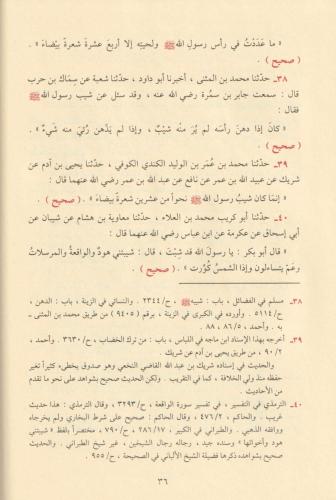 « ما عَدَدْتُ في رأس رسولِ الله ﷺ ولحيتِهِ إلا أربعَ عشرةَ شعرةً بيْضاءَ » .
( صحيح ) .
٣٨ــ حدّثنا محمد بن المثنى ، أخبرنا أبو داود ، حدّثنا شعبة عن سِمَاك بن حرب
قال : سمعت جابر بن سمُرة رضي الله عنه ، وقد سئل عن شيب رسول الله ﷺ
فقال :
« كانَ إذا دهنَ رأسَه لم يُرَ منه شيْبٌ ، وإذا لم يَدْهن رُئيَ منه شيءٌ » .
( صحيح ) .
٣٩ــ حدّثنا محمد بن عُمَر بن الوليد الكندي الكوفي ، حدّثنا يحيى بن آدم عن
شريك عن عبيد الله بن عمر عن نافع عن عبد الله بن عمر رضي الله عنهما قال :
« إنمَا كان شيْبُ رسولِ الله ﷺ نحواً من عشرينَ شعرةً بيضاءَ » . ( صحيح ) .
٤٠ــ حدّثنا أبو كريب محمد بن العلاء ، حدّثنا معاوية بن هشام عن شيبان عن
أبي إسحاق عن عكرمة عن ابن عباس رضي الله عنهما قال :
قال أبو بكر : يا رسولَ الله قد شِبْتَ ، قال : شيبتني هودٌ والواقعةُ والمرسلاتُ
وعمَّ يتساءلون وإذا الشمسُ كُوِّرَتْ » . ( صحيح ) .
٣٨ــ مسلم في الفضائل ، باب : شيبه ﷺ ، ح/٢٣٤٤ . والنسائي في الزينة ، باب : الدهن ،
ح/٥١١٤ . وأورده في الكبرى في الزينة ، برقم ( ٩٤٠٥ ) من طريق محمد بن المثنى ــ
به . وأحمد ، ٨٦/٥ ، ٨٨ .
٣٩ــ أخرجه بهذا الإسناد ابن ماجه في اللباس ، باب : من ترك الخضاب ، ح/٣٦٣٠ ، أحمد ،
٩٠/٢ ، من طريق يحيى بن آدم عن شريك .
والحديث في إسناده شريك بن عبد الله القاضي النخعي وهو صدوق يخطىء كثيراً تغير
حفظه منذ ولي الخلافة ، كما في التقريب . ولكن الحديث صحيح بشواهد على نحو ما تقدم
من الأحاديث .
٤٠ــ الترمذي في التفسير ، في تفسير سورة الواقعة ، ح/٣٢٩٣ ، وقال الترمذي : هذا حديث
غريب . والحاكم ، ٤٧٦/٢ ، وقال الحاكم : صحيح على شرط البخاري ولم يخرجاه
ووافقه الذهبي . والطبراني في الكبير ، ٢٨٧/١٧ ، ح/٧٩٠ ، مختصراً بلفظ « شيبتني
هود وأخواتها » وسنده جيد ، رجاله رجال الشيخين ، غير شيخ الطبراني . والحديث
صحيح بشواهده ذكرها فضيلة الشيخ الألباني في الصحيحة ، ح/٩٥٥ .
٣٦